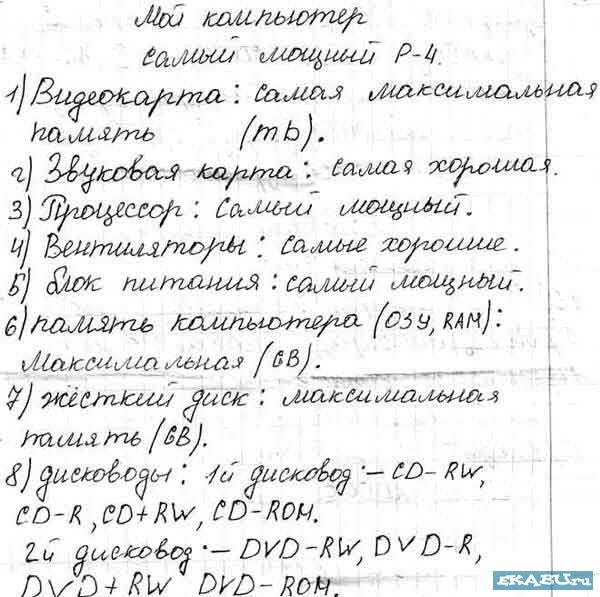 Мой компьютер
самый мощный P-4.
1) Видеокарта: самая максимальная
память (mb).
2) Звуковая карта: самая хорошая.
3) Процессор: самый мощный.
4) Вентиляторы: самые хорошие.
5) блок питания: самый мощный.
6) память компьютера (ОЗУ, RAM):
максимальная (GB).
7) жёсткий диск: максимальная
память (GB).
8) дисководы: 1й дисковод:– CD-RW,
CD-R, CD+RW, CD-ROM.
2й дисковод:– DVD-RW, DVD-R,
DVD+RW DVD-ROM.
EKABU.ru